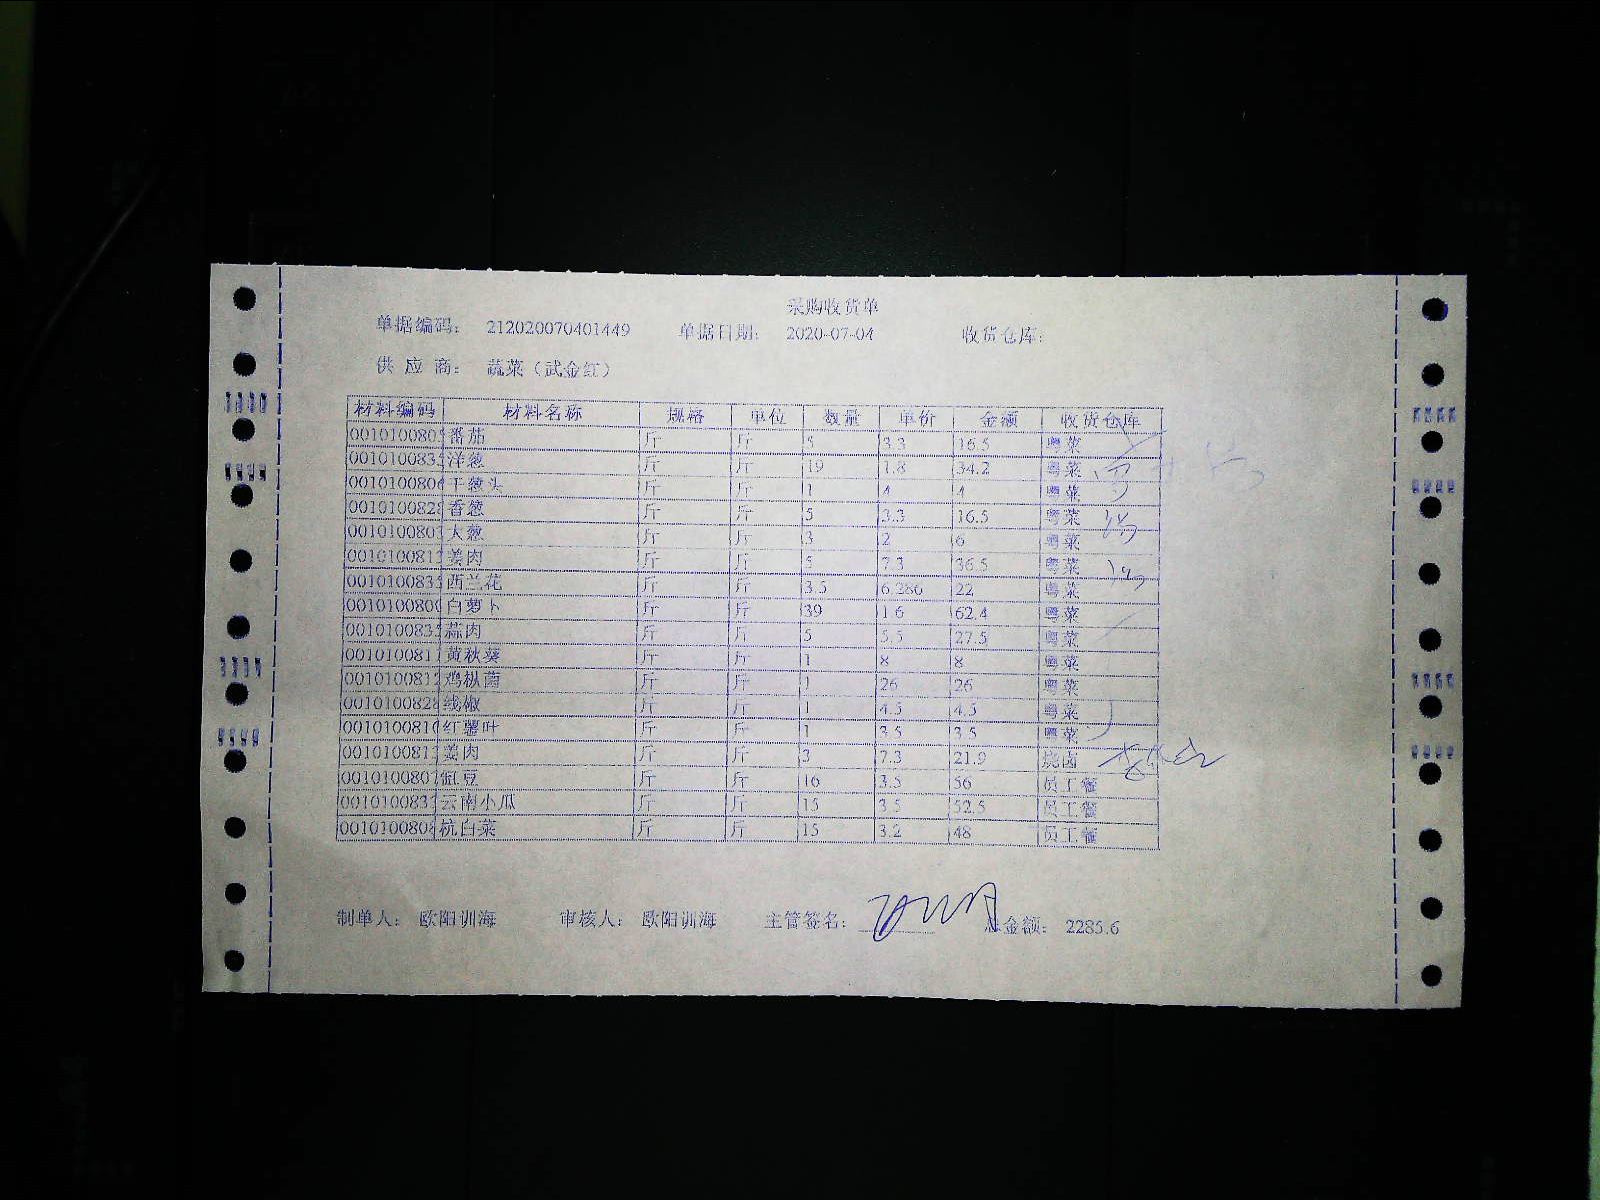 采购收货单
单据编码： 212020070401449 单据日期： 2020-07-04 收货仓库：
供 应 商： 蔬菜（武金红）
材料编码 材料名称 规格 单位 数量 单价 金额 收货仓库
0010100805 番茄 斤 斤 5 3.3 16.5 粤菜
0010100835 洋葱 斤 斤 19 1.8 34.2 粤菜
0010100804 干葱头 斤 斤 1 4 4 粤菜
0010100828 香葱 斤 斤 5 3.3 16.5 粤菜
0010100803 大葱 斤 斤 3 2 6 粤菜
0010100813 姜肉 斤 斤 5 7.3 36.5 粤菜
0010100835 西兰花 斤 斤 3.5 6.286 22 粤菜
0010100800 白萝卜 斤 斤 39 1.6 62.4 粤菜
0010100835 蒜肉 斤 斤 5 5.5 27.5 粤菜
0010100811 黄秋葵 斤 斤 1 8 8 粤菜
0010100812 鸡枞菌 斤 斤 1 26 26 粤菜
0010100828 线椒 斤 斤 1 4.5 4.5 粤菜
0010100810 红薯叶 斤 斤 1 3.5 3.5 粤菜
0010100813 姜肉 斤 斤 3 7.3 21.9 烧卤
0010100807 豇豆 斤 斤 16 3.5 56 员工餐
0010100833 云南小瓜 斤 斤 15 3.5 52.5 员工餐
0010100808 杭白菜 斤 斤 15 3.2 48 员工餐
制单人： 欧阳训海 审核人： 欧阳训海 主管签名： 总金额： 2285.6